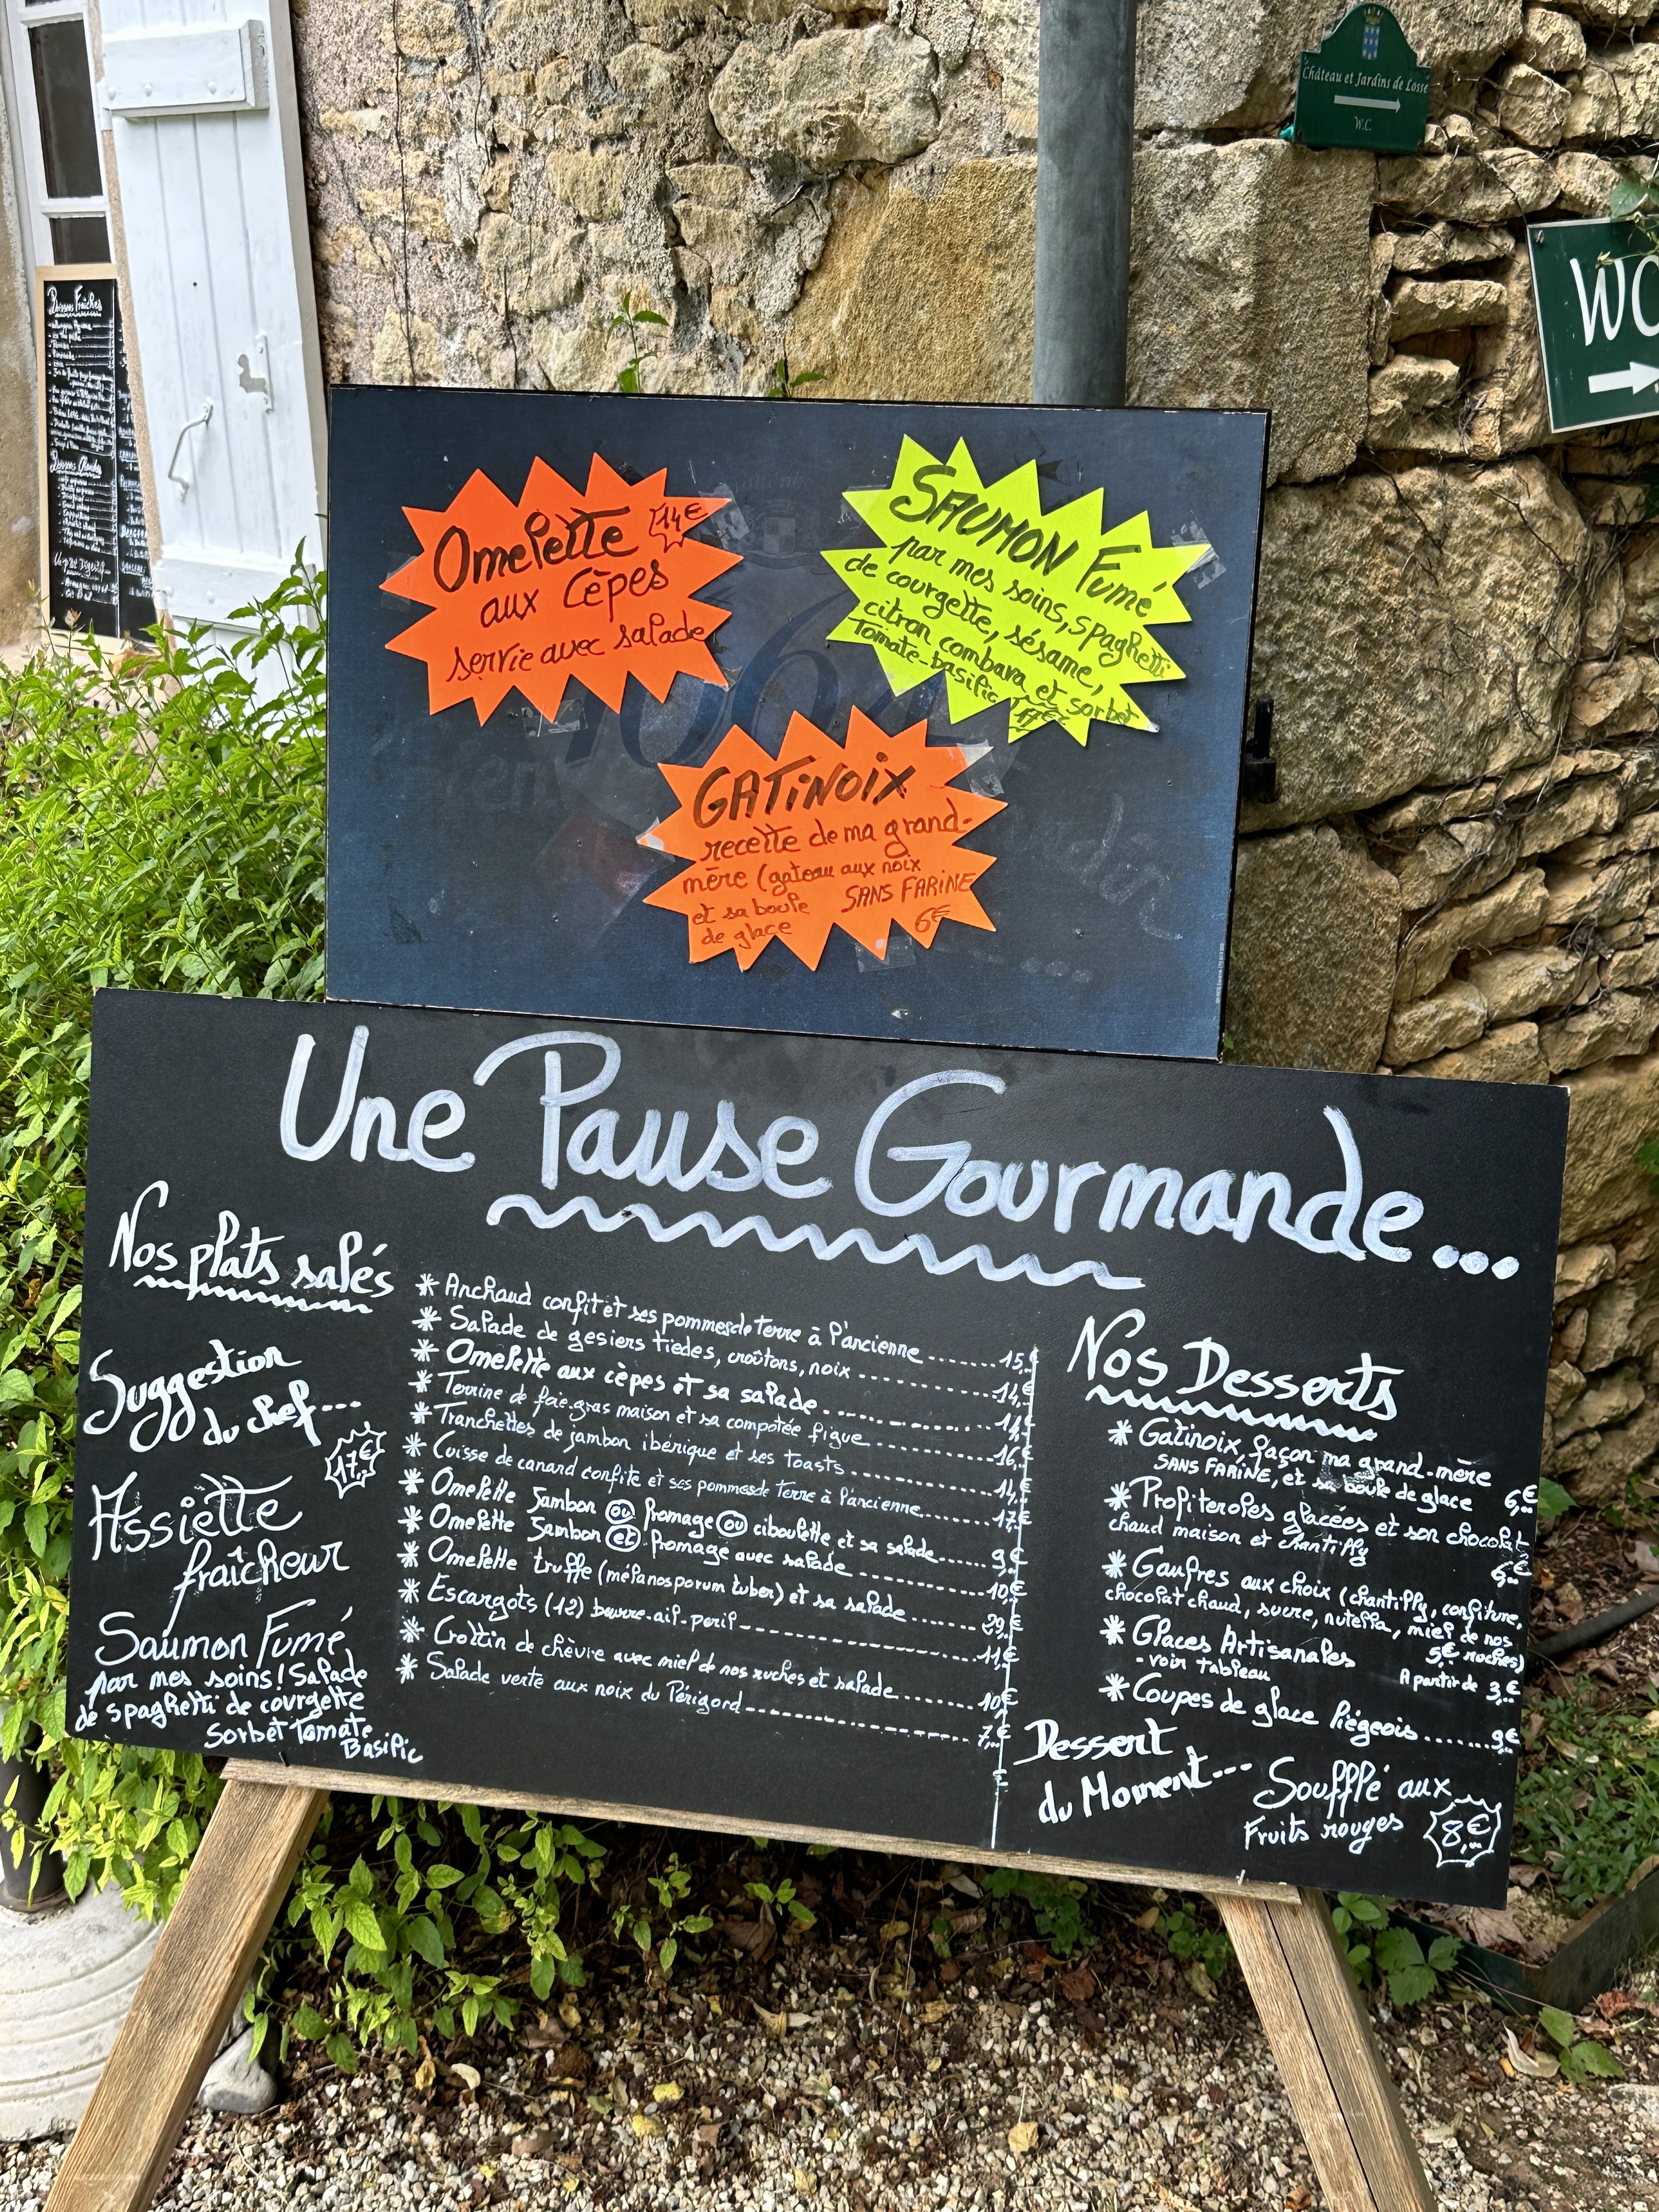 Château et Jardins de Losse
W.C.
WC
Boissons Fraîches
Boissons Chaudes
Omelette 14€
aux Cèpes
servie avec salade
SAUMON Fumé
par mes soins, spaghetti
de courgette, sésame,
citron combava et sorbet
Tomate-basilic 17€
GATiNOiX
recette de ma grand-
mère (gateau aux noix
et sa boule SANS FARiNE
de glace 6€
Une Pause Gourmande...
Nos plats salés
Suggestion
du chef...
17€
Assiette
fraîcheur
Saumon Fumé
par mes soins! Salade
de spaghetti de courgette
Sorbet Tomate
Basilic
* Anchaud confit et ses pommes de terre à l'ancienne.......15,€
* Salade de gesiers tiedes, croûtons, noix..............14,€
* Omelette aux cèpes et sa salade..............14,€
* Terrine de foie-gras maison et sa compotée figue..........16,€
* Tranchettes de jambon ibérique et ses toasts............14,€
* Cuisse de canard confite et ses pommes de terre à l'ancienne......17,€
* Omelette Jambon ou fromage ou ciboulette et sa salade......9,€
* Omelette Jambon et fromage avec salade..........10,€
* Omelette truffe (mélanosporum tuber) et sa salade......29,€
* Escargots (12) beurre-ail-persil..............11,€
* Crottin de chèvre avec miel de nos ruches et salade.......10,€
* Salade verte aux noix du Périgord..............7,€
€
Nos Desserts
* Gatinoix, façon ma grand-mère
SANS FARiNE, et sa boule de glace 6,€
* Profiteroles glacées et son chocolat
chaud maison et chantilly 6,€
* Gaufres aux choix (chantilly, confiture,
chocolat chaud, sucre, nutella, miel de nos
5€ ruches)
* Glaces Artisanales
- voir tableau A partir de 3,€
* Coupes de glace liégeois.......9€
Dessert
du Moment... Soufflé aux
Fruits rouges 8,€